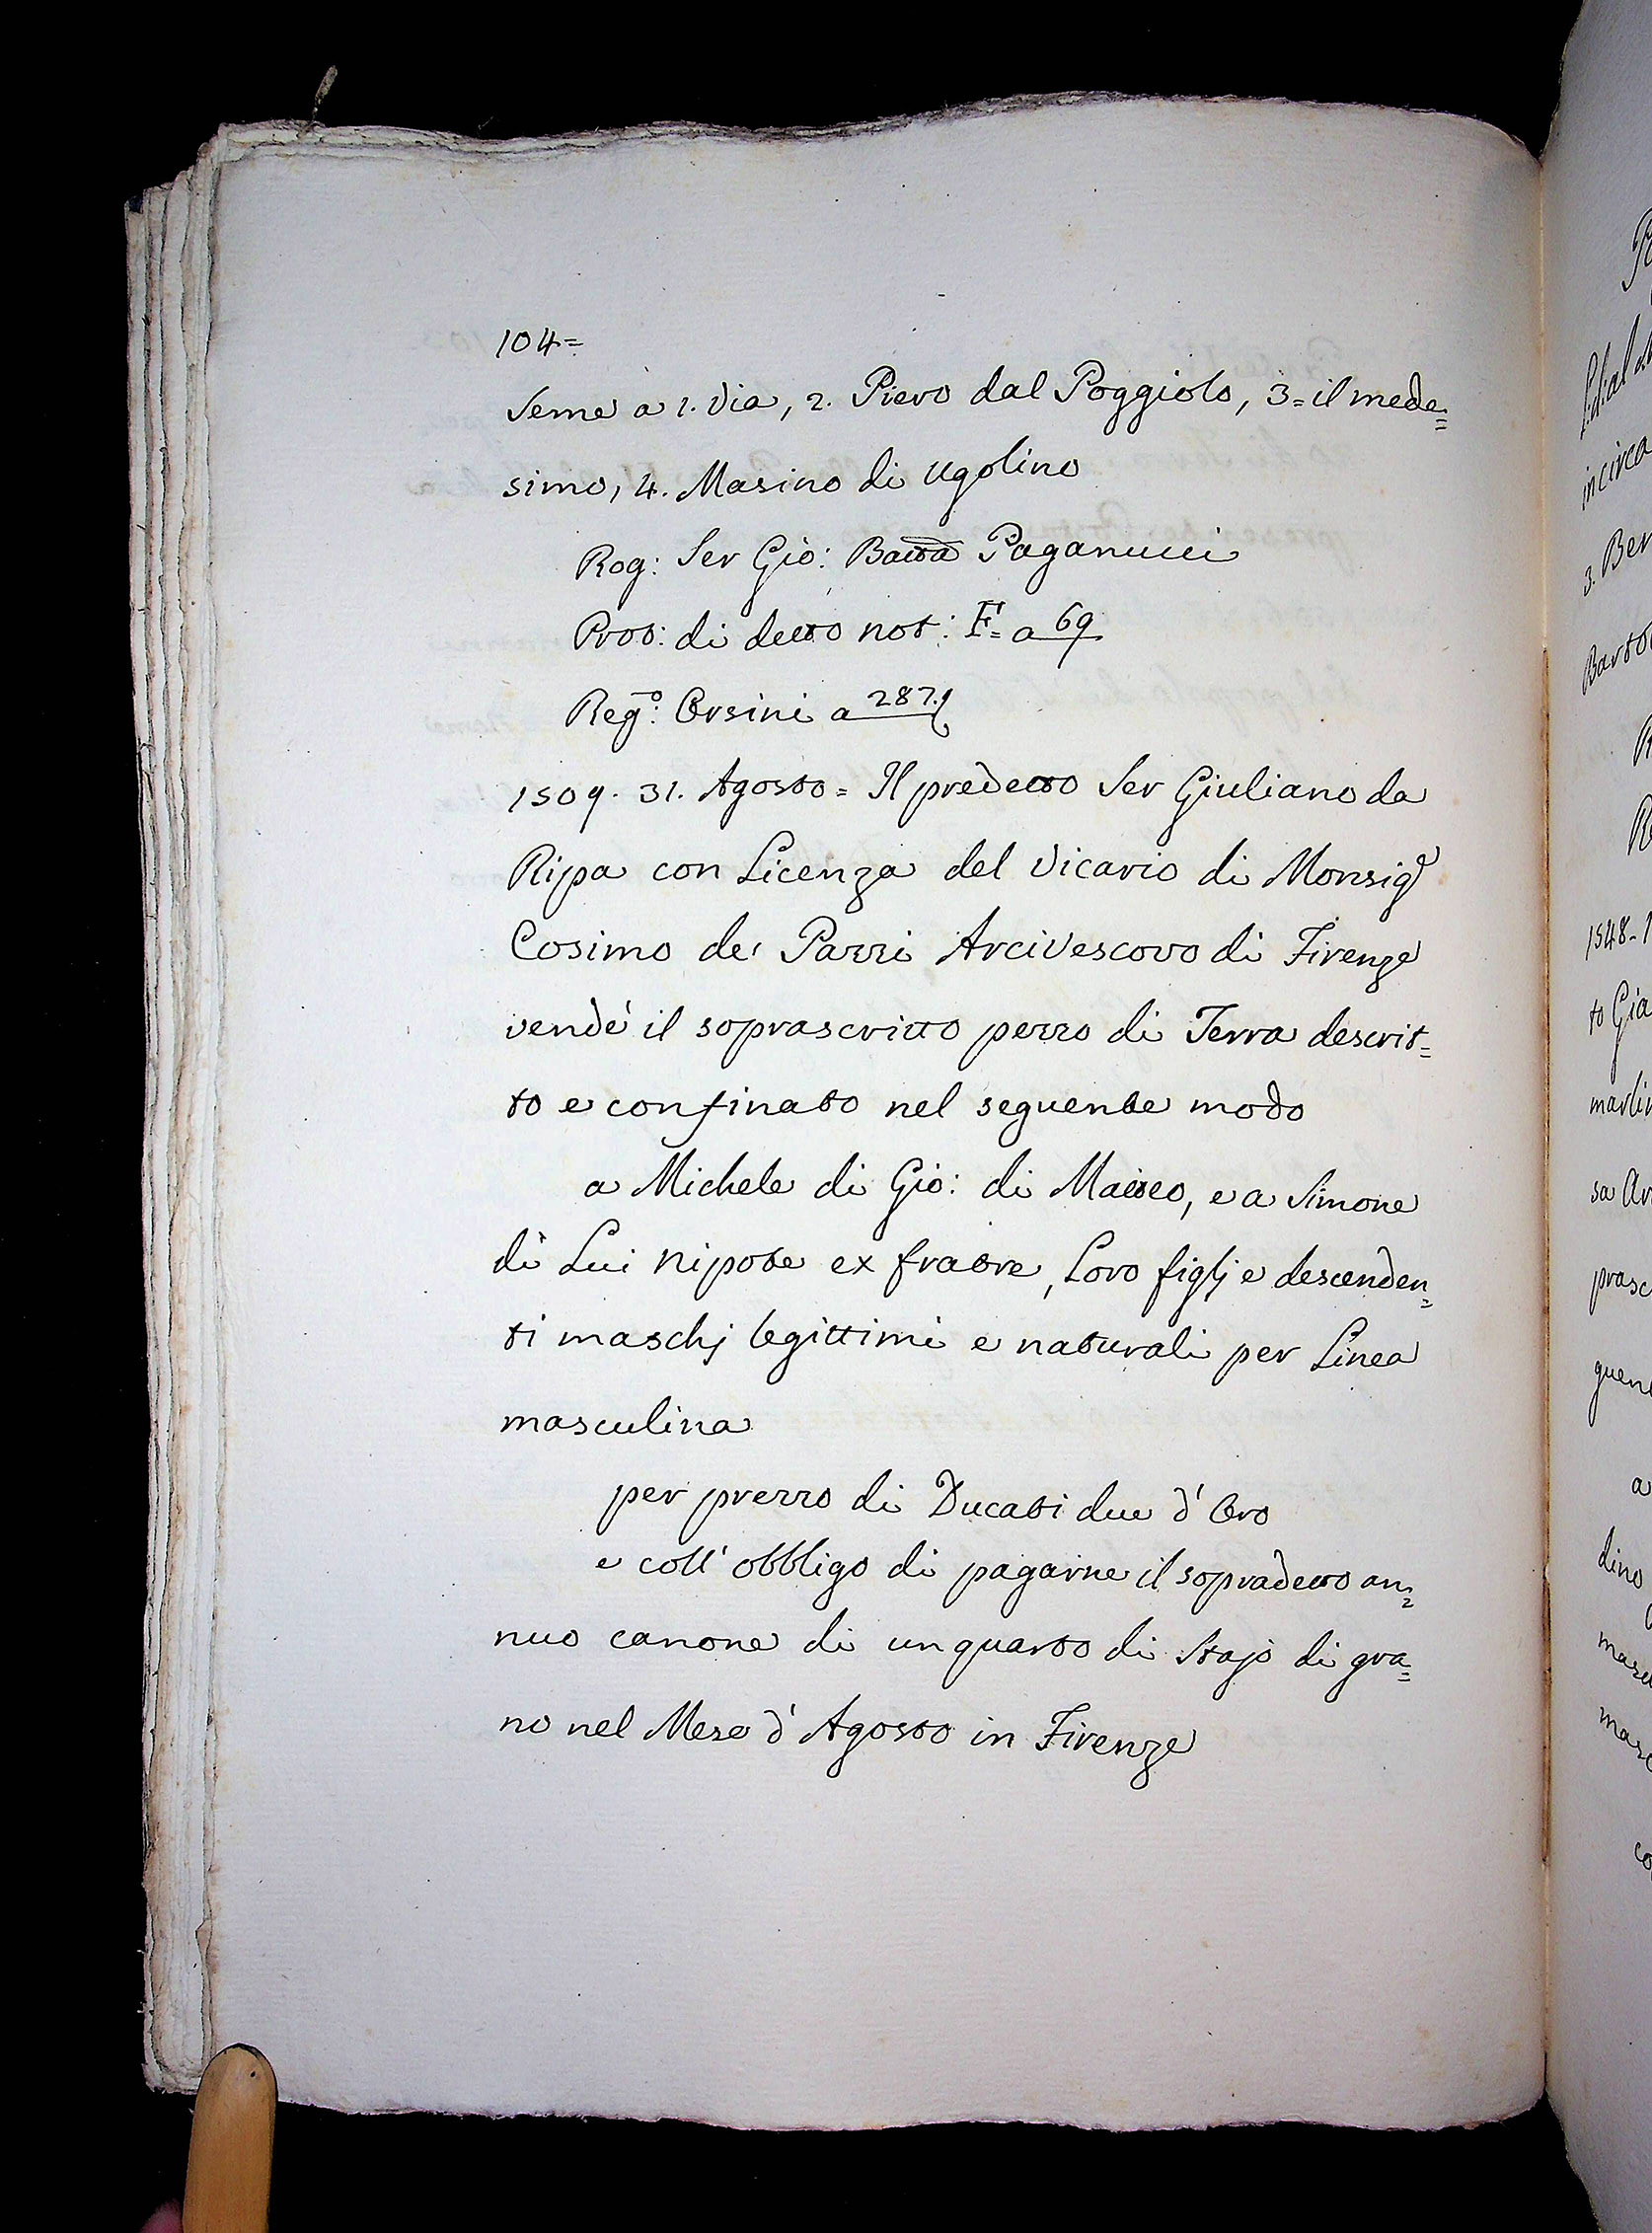 104=
seme à 1. Via, 2. Piero dal Poggiolo, 3= il mede=
simo, 4. Masino di Ugolino
Rog: Ser Gio: Batta Paganucci
Prot: di detto not: F= a 69
Reg.o Orsini a 287.
1509. 31. Agosto = Il predetto Ser Giuliano da
Ripa con Licenza del Vicario di Monsig.e
Cosimo de' Pazzi Arcivescovo di Firenze
vendé il soprascritto pezzo di Terra descrit=
to e confinato nel seguente modo
a Michele di Gio: di Matteo, e a Simone
di Lui Nipote ex fratre, Loro figlj e descenden=
ti maschj legittimi e naturali per Linea
masculina
per prezzo di Ducati due d'Oro
e coll'obbligo di pagarne il sopradetto an=
nuo canone di un quarto di Stajo di gra=
no nel Mese d'Agosto in Firenze
in circa
3. Ber
1548-1
to Gia
sa
prasc
guen
a
dino
masc
co